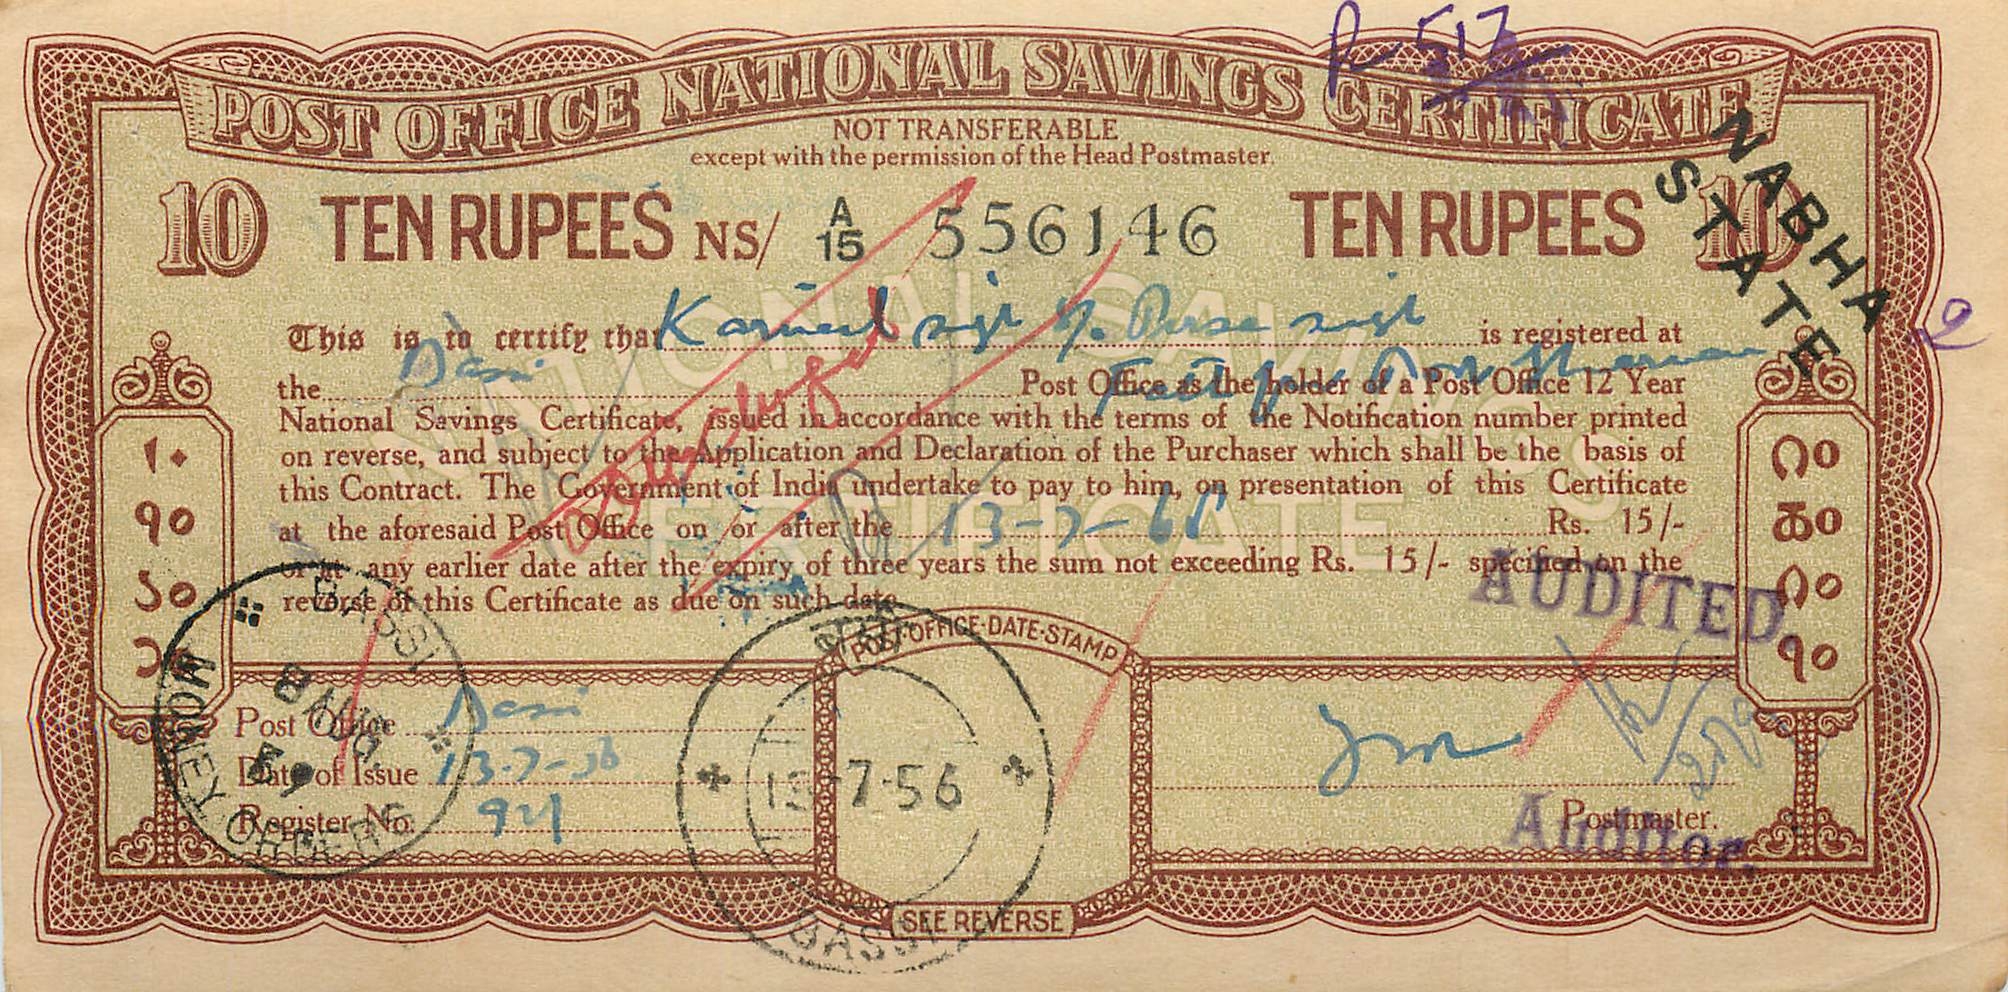 R-517
POST OFFICE NATIONAL SAVINGS CERTIFICATE
NOT TRANSFERABLE
except with the permission of the Head Postmaster.
NABHA
STATE
10 TEN RUPEES NS/ A/15 556146 TEN RUPEES 10
This is to certify that Karnail singh is registered at
the Bassi Post Office as the holder of a Post Office 12 Year
National Savings Certificate, issued in accordance with the terms of the Notification number printed
on reverse, and subject to the Application and Declaration of the Purchaser which shall be the basis of
this Contract. The Government of India undertake to pay to him, on presentation of this Certificate
at the aforesaid Post Office on or after the 13-7-68 Rs. 15/-
or at any earlier date after the expiry of three years the sum not exceeding Rs. 15/- specified on the
reverse of this Certificate as due on such date.
۱۰
१०
১০
૧૦
౧౦
௰௦
೧೦
൧൦
AUDITED
BASSI
MONEY ORDERS
POST·OFFICE·DATE·STAMP
बसी
13-7-56
BASSI
Post Office Bassi
Date of Issue 13-7-56
Register No. 921
Postmaster.
Auditor.
SEE REVERSE